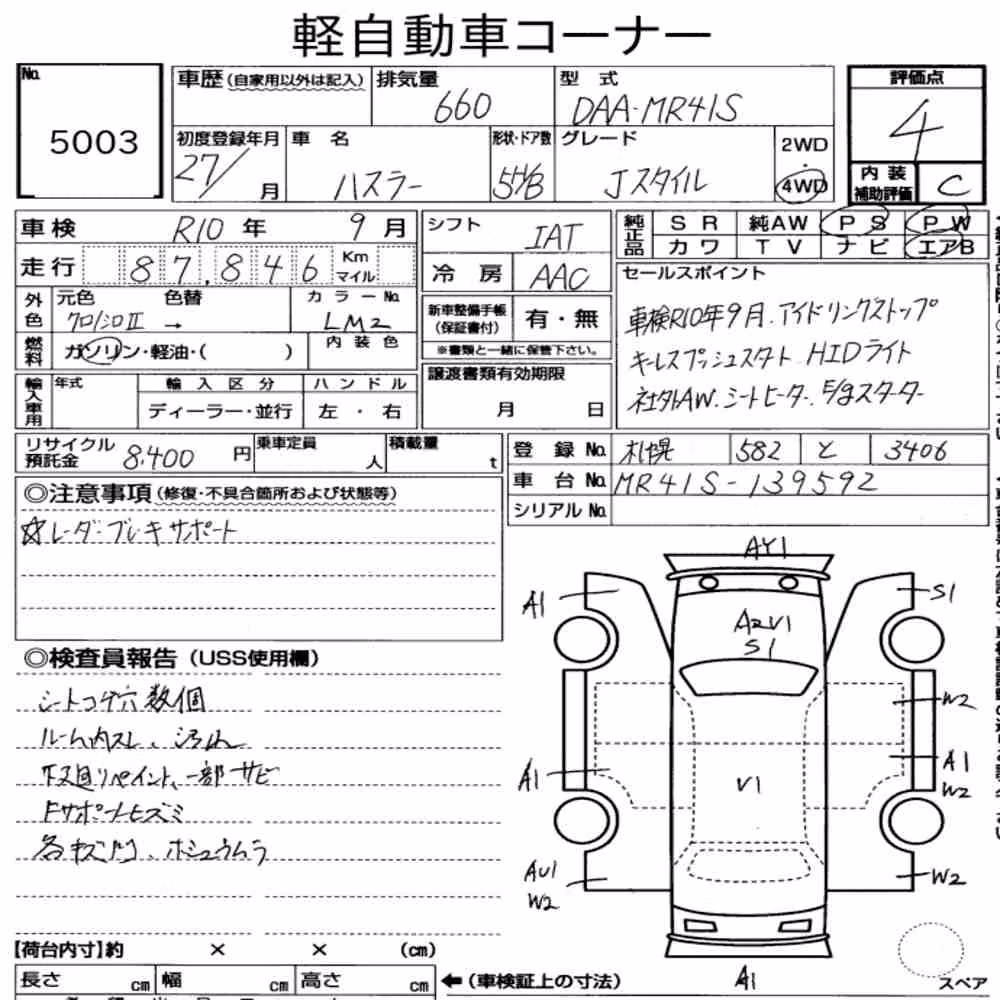 軽自動車コーナー
No. 5003
車歴(自家用以外は記入) 排気量 660 型式 DAA-MR41S
評価点 4
初度登録年月 27/ 月 車名 ハスラー 形状・ドア数 5H/B グレード Jスタイル 2WD・4WD
内装補助評価 C
車検 R10年 9月
走行 87,846 Km マイル
外色 元色 クロ/シロⅡ 色替 → カラーNo. LM2
燃料 ガソリン・軽油・( ) 内装色
輸入車用 年式 輸入区分 ディーラー・並行 ハンドル 左・右
シフト IAT
冷房 AAC
新車整備手帳(保証書付) 有・無
※書類と一緒に保管下さい。
譲渡書類有効期限 月 日
純正品 SR 純AW PS PW
カワ TV ナビ エアB
セールスポイント
車検R10年9月.アイドリングストップ
キーレスプッシュスタート HIDライト
社外AW.シートヒーター.E/gスターター
リサイクル預託金 8,400 円 乗車定員 人 積載量 t
登録No. 札幌 582 と 3406
車台No. MR41S-139592
シリアルNo.
◎注意事項(修復・不具合箇所および状態等)
☆レーダーブレーキサポート
◎検査員報告(USS使用欄)
シートコゲ穴数個
ルーム内スレ、汚れ
下廻りペイント、一部サビ
Fサポートヒズミ
各キズ凹、ホシュウムラ
AY1
A1
S1
A2V1
S1
W2
A1
V1
A1
W2
AU1
W2
W2
A1
【荷台内寸】約 × × (cm)
長さ cm 幅 cm 高さ cm ←(車検証上の寸法)
スペア